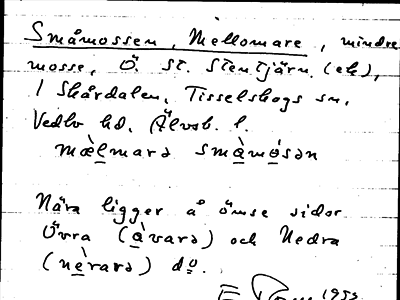 Småmossen, Mellomare, mindre
mosse, Ö st. Stentjärn (ek),
i Skårdalen, Tisselskogs sn,
Vedbo hd, Älvsb. l.
mæ̀lmarə småmosən
Nära ligger å ömse sidor
Övra (åvarə) och Nedra
(nèrarə) do.
1953